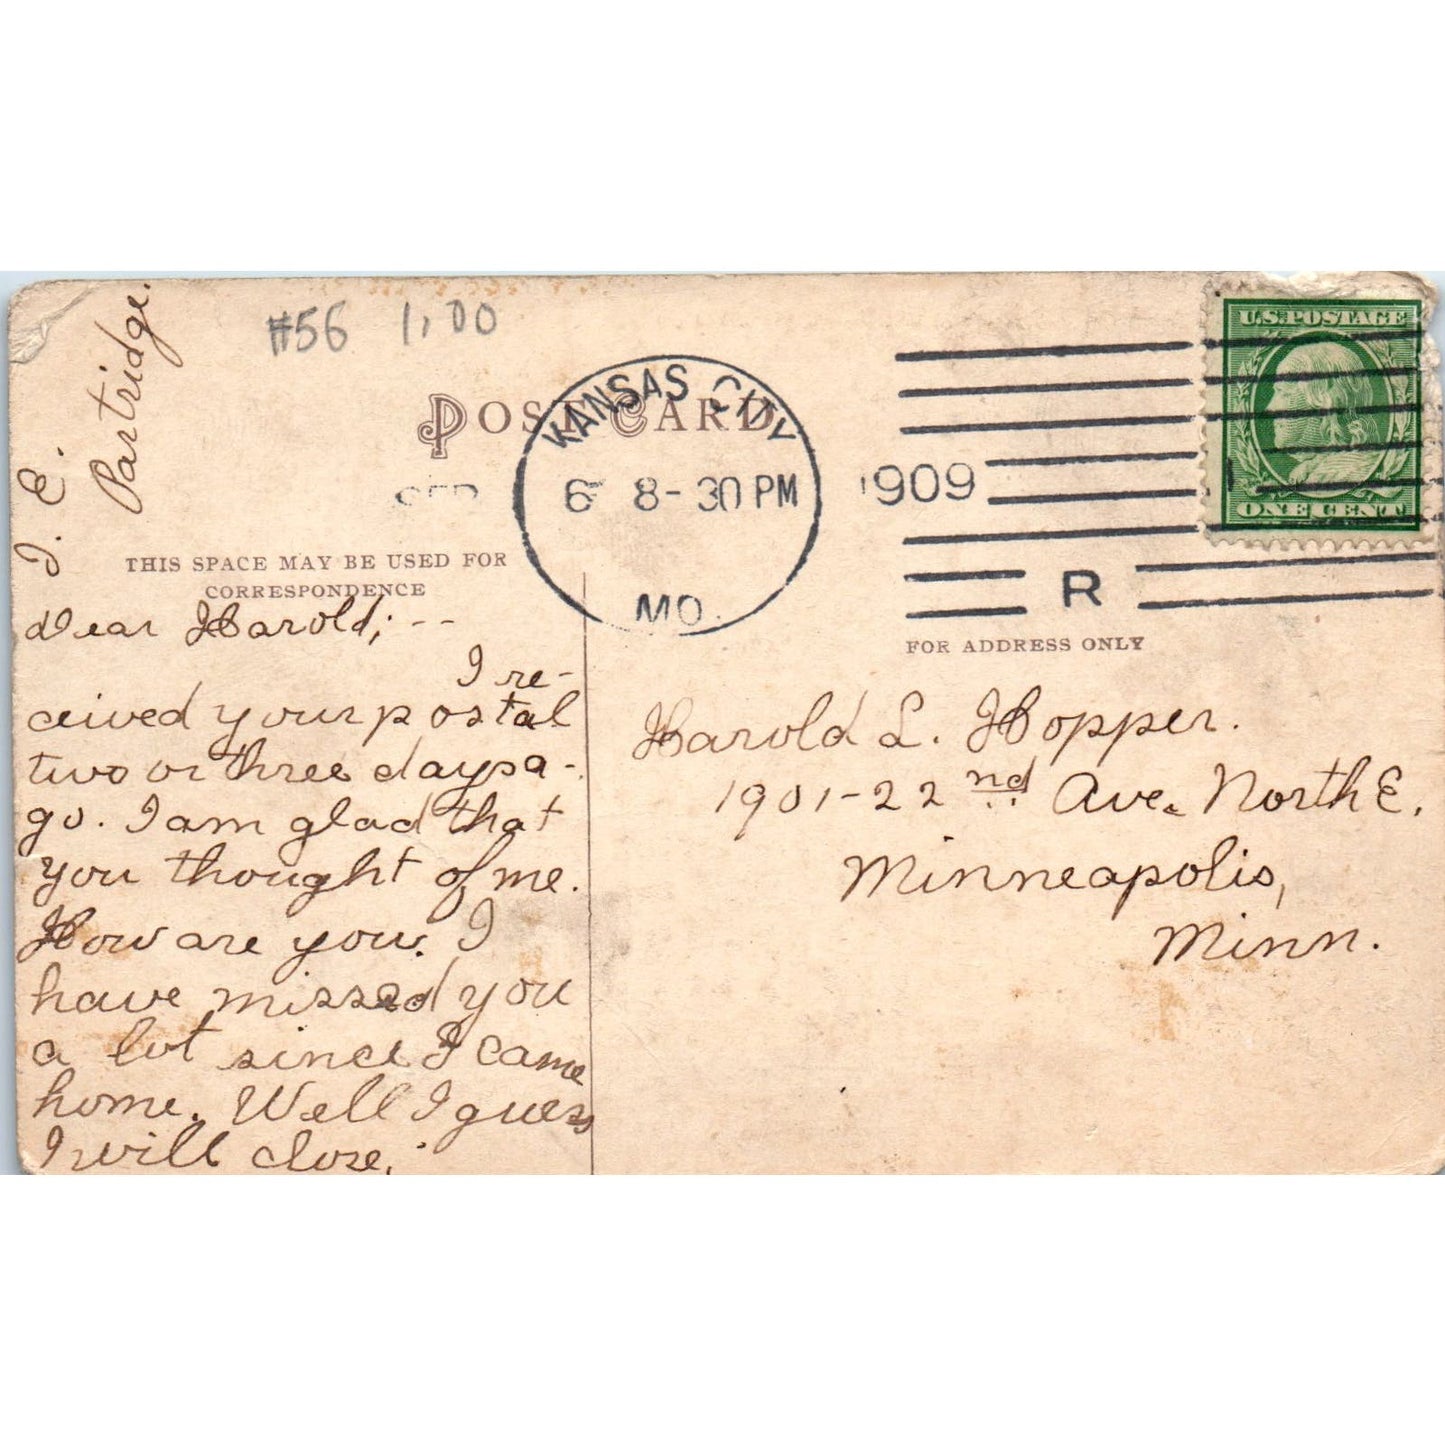 #56 1.00
POST CARD
KANSAS CITY
SEP 6 8-30 PM 1909
MO.
R
U.S. POSTAGE
ONE CENT
THIS SPACE MAY BE USED FOR
CORRESPONDENCE
FOR ADDRESS ONLY
Dear Harold; --
I re-
ceived your postal
two or three days a-
go. I am glad that
you thought of me.
How are you. I
have missed you
a lot since I came
home. Well I guess
I will close.
J. E.
Partridge.
Harold L. Hopper.
1901-22nd Ave. North E.
Minneapolis,
Minn.